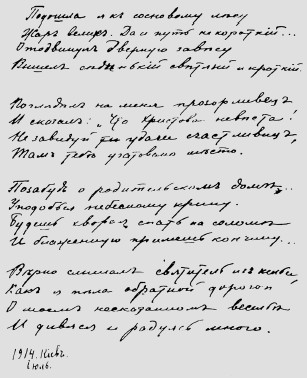 Подошла я къ сосновому лѣсу
Жаръ великъ. Да и путь не короткій...
Отодвинулъ дверную завѣсу
Вышелъ сѣденькій свѣтлый и кроткій.
Поглядѣлъ на меня прозорливецъ
И сказалъ: „Что Христова невѣста!
Не завидуй ты удачѣ счастливицъ,
Тамъ тебѣ уготовано мѣсто.
Позабудь о родительскомъ домѣ,..
Уподобься небесному крину.
Будешь хворая спать на соломѣ
И блаженную примешь кончину...
Вѣрно слышалъ святитель изъ кельи,
Какъ я пѣла обратной дорогой
О моемъ несказанномъ весельи
И дивяся и радуясь много.
1914. Кіевъ.
Іюль.